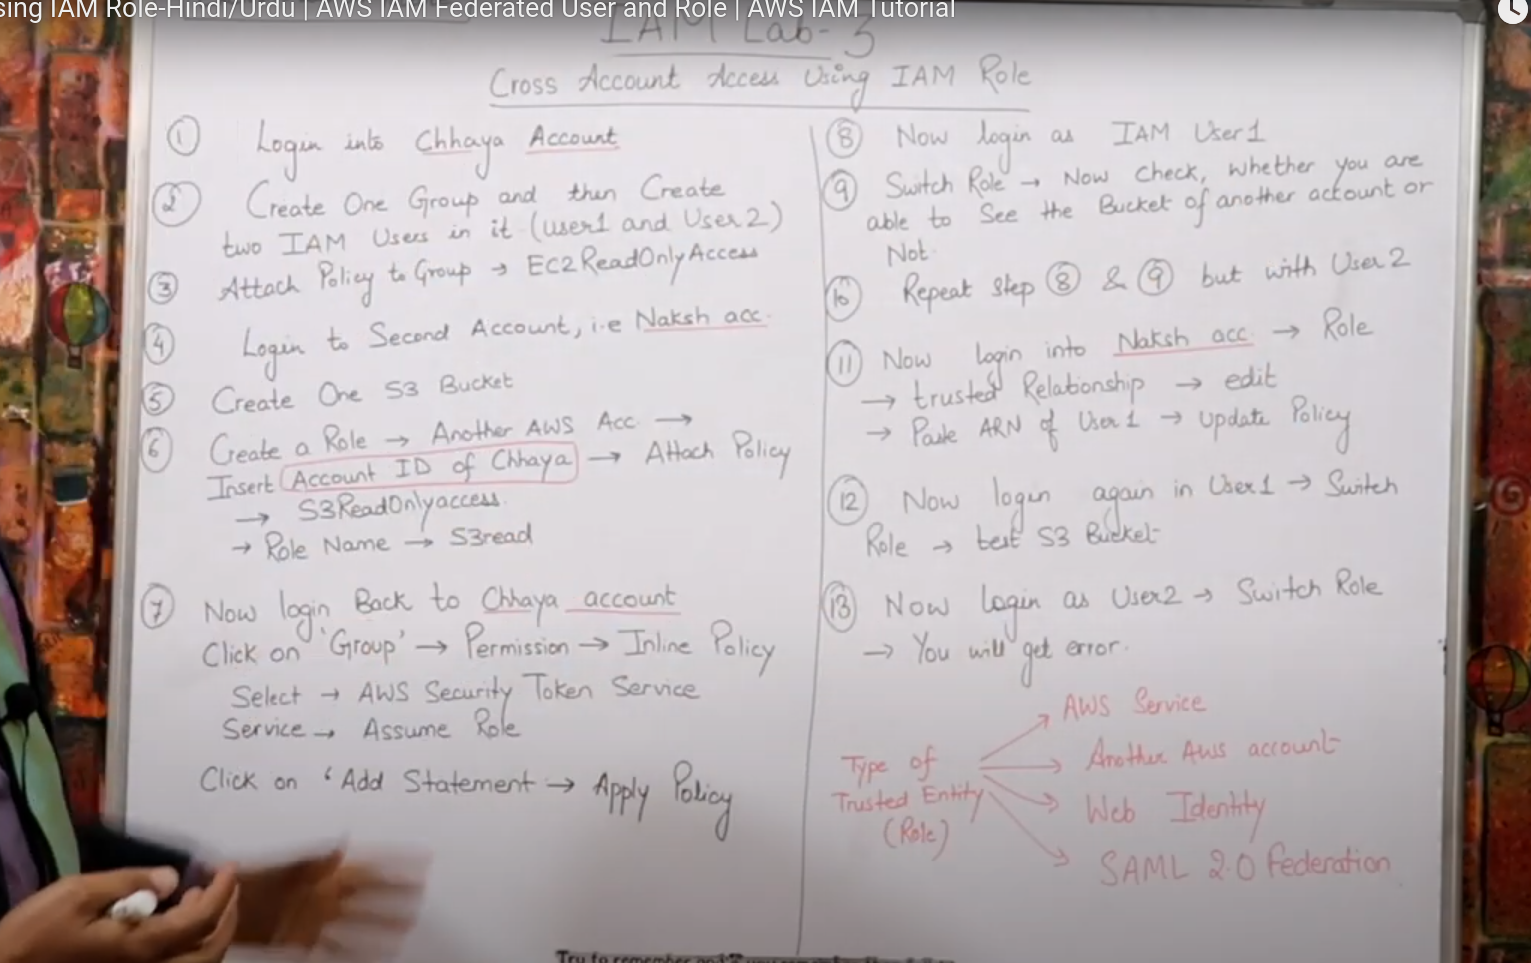 sing IAM Role-Hindi/Urdu | AWS IAM Federated User and Role | AWS IAM Tutorial
IAM Lab-3
Cross Account Access Using IAM Role
① Login into Chhaya Account
② Create One Group and then Create
two IAM Users in it (user1 and User2)
③ Attach Policy to Group → EC2ReadOnlyAccess
④ Login to Second Account, i.e Naksh acc.
⑤ Create One S3 Bucket
⑥ Create a Role → Another AWS Acc →
Insert Account ID of Chhaya → Attach Policy
→ S3ReadOnlyaccess.
→ Role Name → S3read
⑦ Now login Back to Chhaya account
Click on 'Group' → Permission → Inline Policy
Select → AWS Security Token Service
Service → Assume Role
Click on 'Add Statement → Apply Policy
⑧ Now login as IAM User1
⑨ Switch Role → Now Check, whether you are
able to See the Bucket of another account or
Not.
⑩ Repeat Step ⑧ & ⑨ but with User2
⑪ Now login into Naksh acc. → Role
→ trusted Relationship → edit
→ Paste ARN of User1 → Update Policy
⑫ Now login again in User1 → Switch
Role → test S3 Bucket
⑬ Now login as User2 → Switch Role
→ You will get error.
Type of
Trusted Entity
(Role)
AWS Service
Another AWS account
Web Identity
SAML 2.0 federation
Try to remember